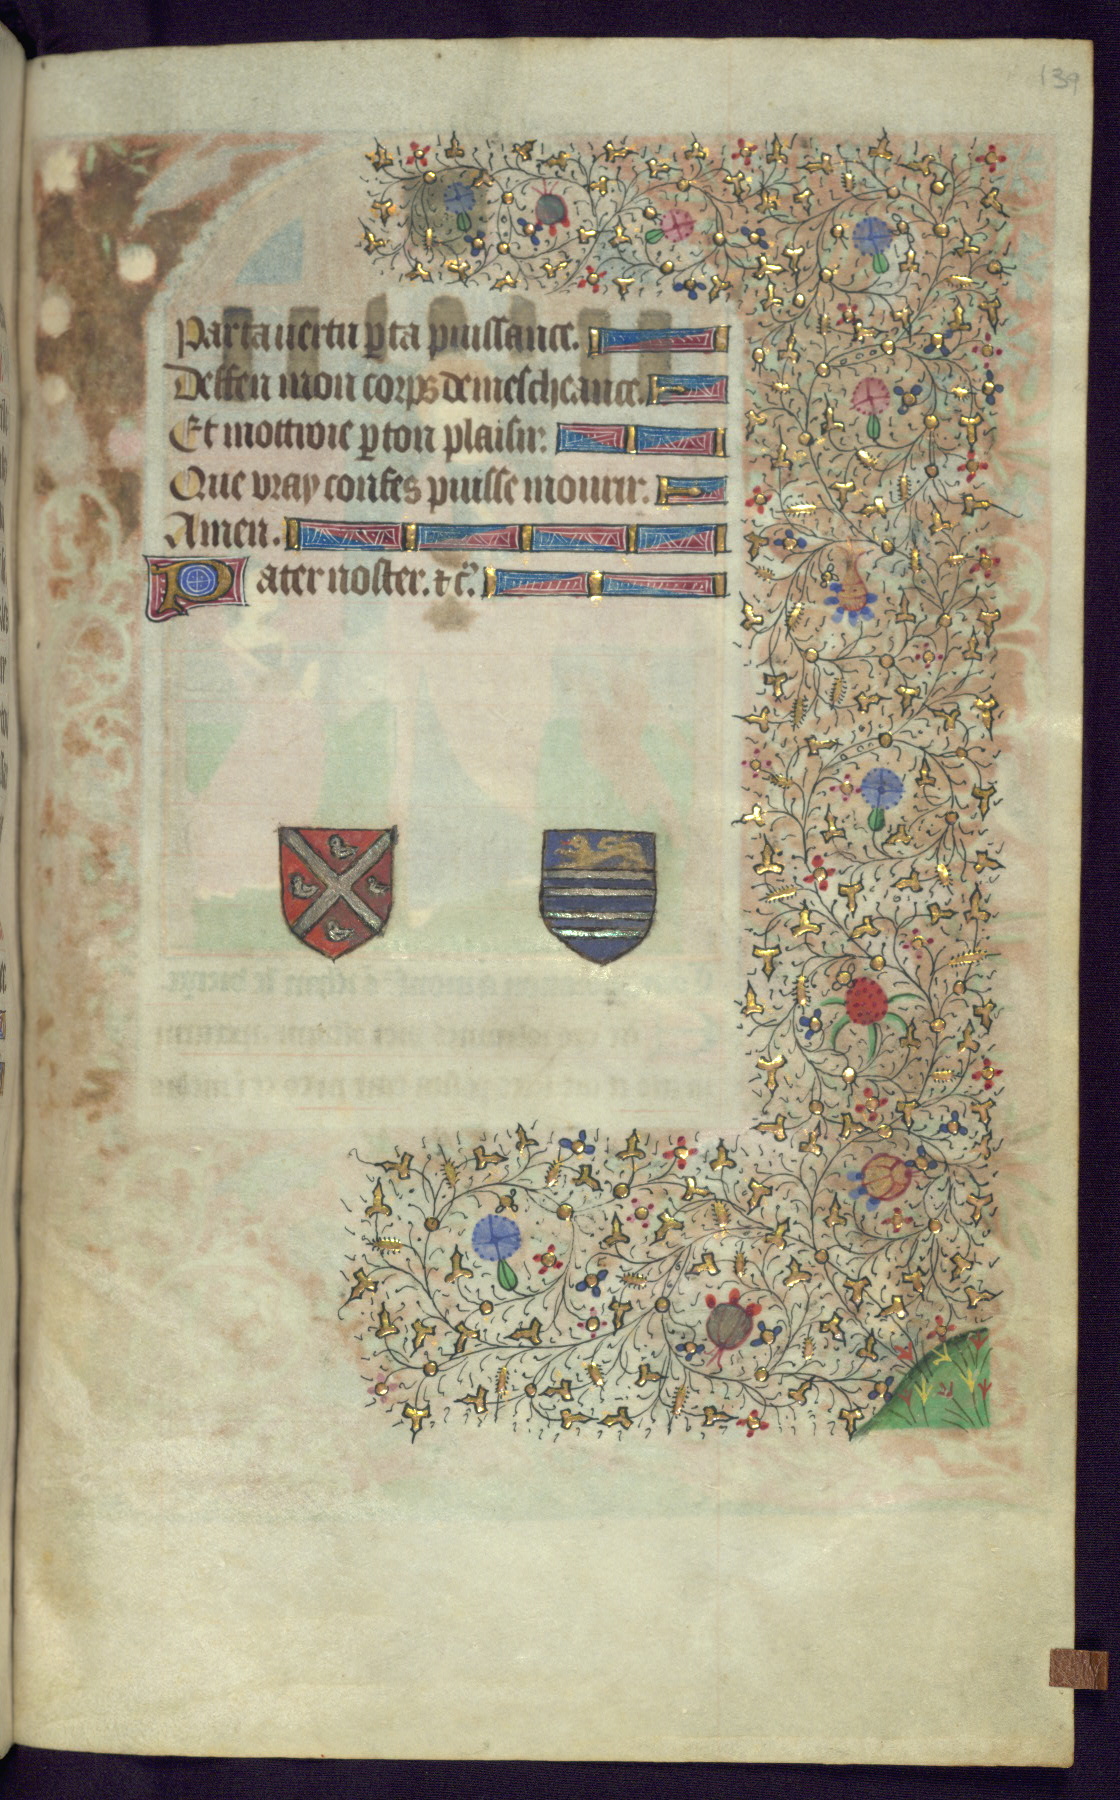 139
Par ta uertu p ta puissance.
Deffen mon corps de mescheance.
Et mottroie p ton plaisir.
Que vray confes puisse mourir.
Amen.
Pater noster. ⁊ c̃.